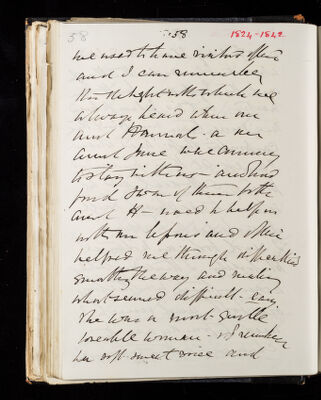 58 58 1824-1842
we used to have visitors often
and I can remember
the delight with which we
always heard when our
Aunt Hannah - or our
Aunt Jane was coming
to stay with us - and
fond of them both
Aunt H - used to help us
with our lessons and often
helped me through difficulties
smoothing the way and making
what seemed difficult - easy
She was a most gentle
loveable woman - & I remember
her soft sweet voice and